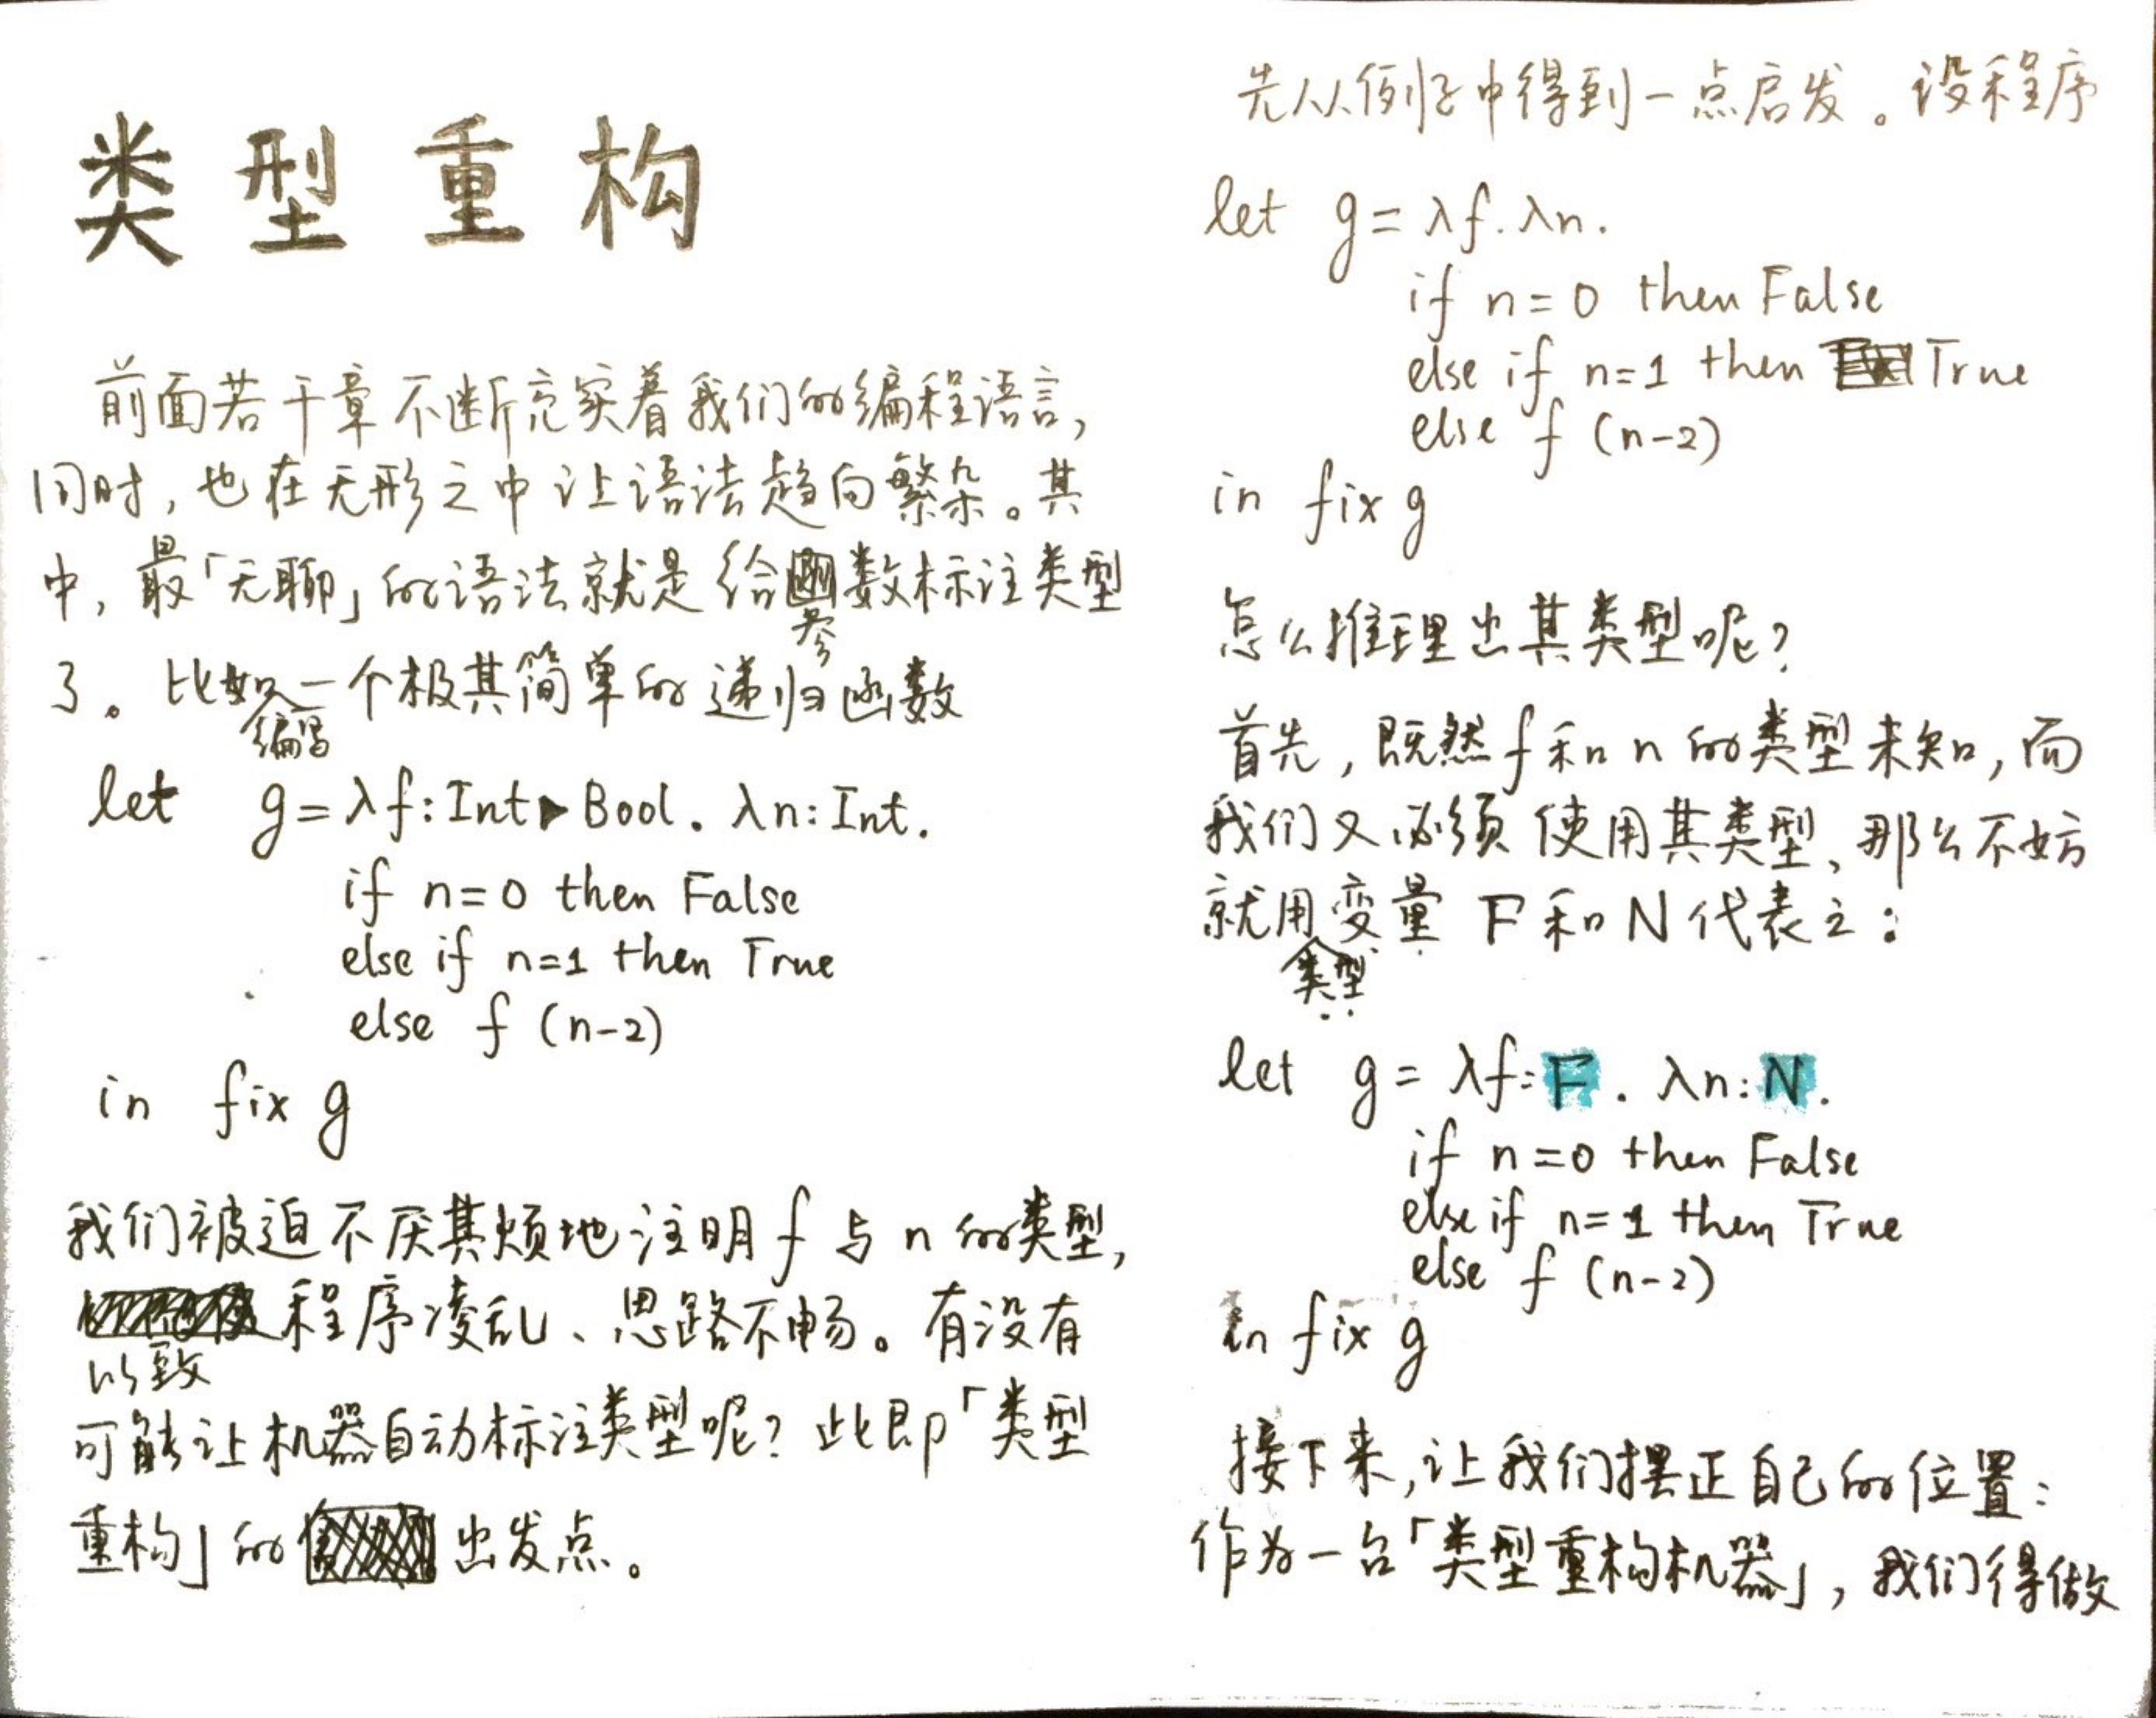 类型重构
前面若干章不断充实着我们的编程语言,
同时,也在无形之中让语法趋向繁杂。其
中,最「无聊」的语法就是给参数标注类型
了。比如编写一个极其简单的递归函数
let g = λf:Int▸Bool. λn:Int.
if n=0 then False
else if n=1 then True
else f (n-2)
in fix g
我们被迫不厌其烦地注明 f 与 n 的类型,
以致程序凌乱、思路不畅。有没有
可能让机器自动标注类型呢?此即「类型
重构」的出发点。
先从例子中得到一点启发。设程序
let g = λf. λn.
if n=0 then False
else if n=1 then True
else f (n-2)
in fix g
怎么推理出其类型呢?
首先,既然 f 和 n 的类型未知,而
我们又必须使用其类型,那么不妨
就用类型变量 F 和 N 代表之:
let g = λf:F. λn:N.
if n=0 then False
else if n=1 then True
else f (n-2)
in fix g
接下来,让我们摆正自己的位置:
作为一台「类型重构机器」,我们得做